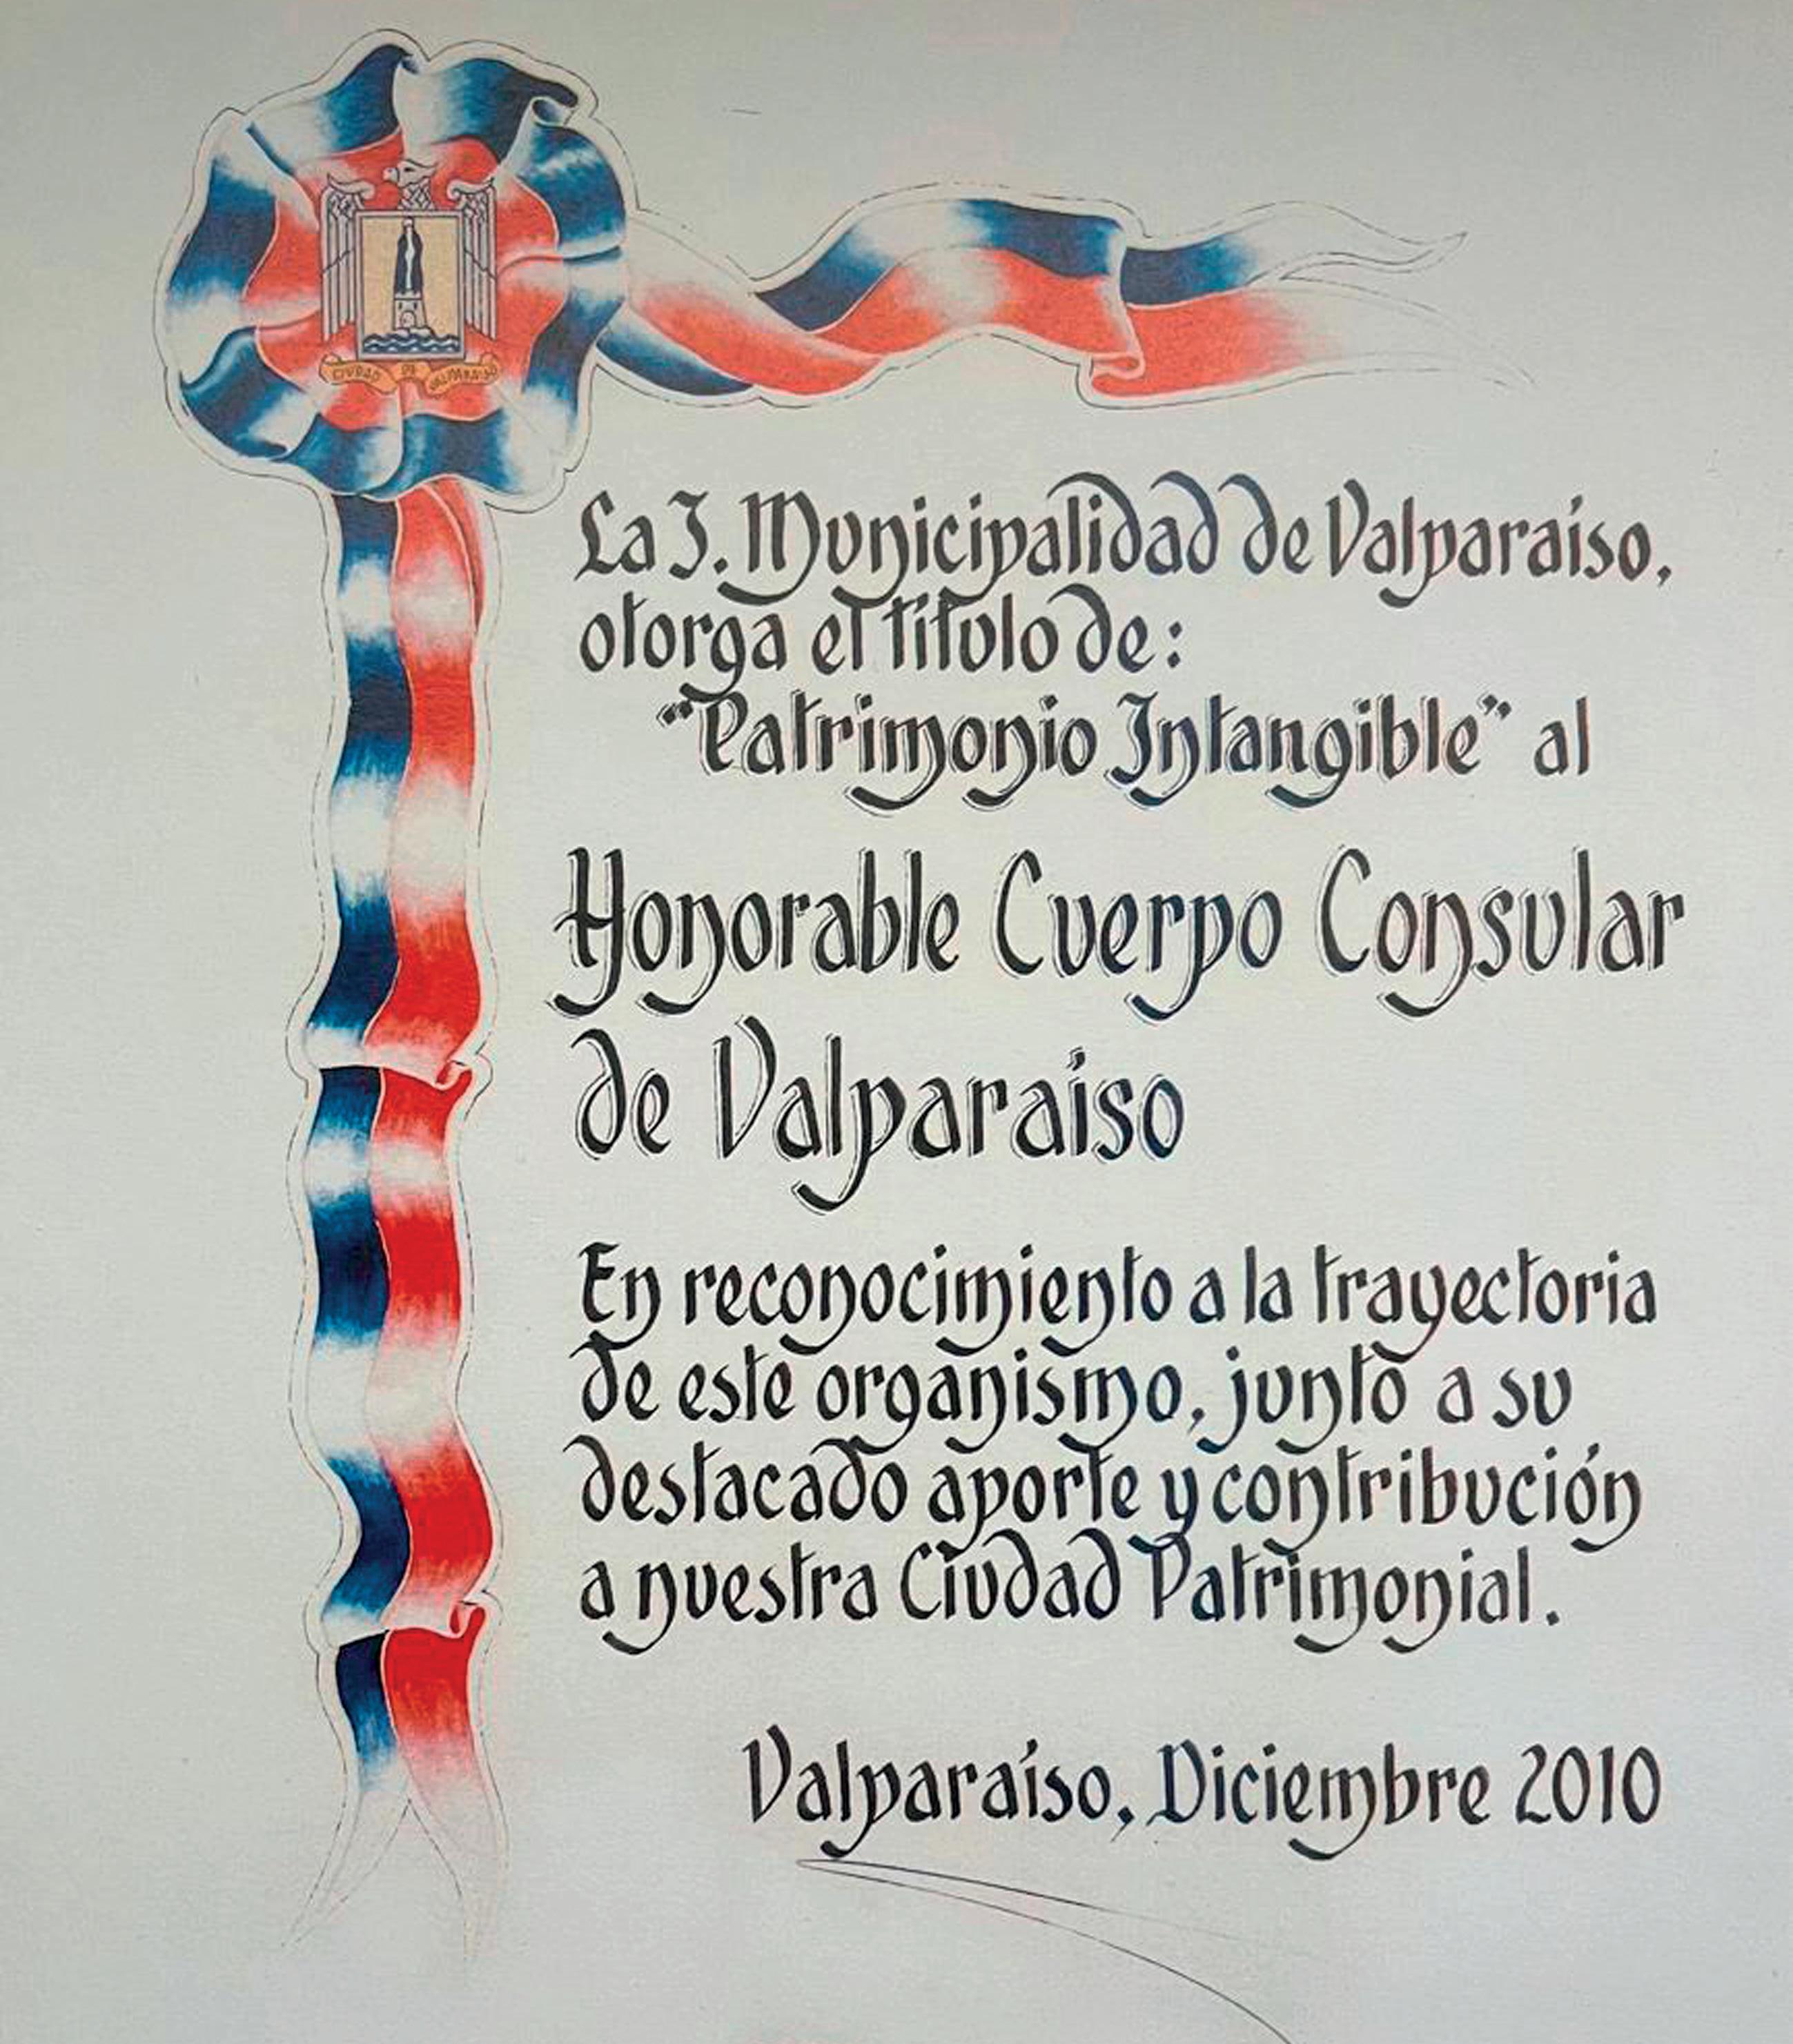 CIUDAD DE VALPARAISO
La I. Municipalidad de Valparaíso,
otorga el título de:
“Patrimonio Intangible” al
Honorable Cuerpo Consular
de Valparaíso
En reconocimiento a la trayectoria
de este organismo, junto a su
destacado aporte y contribución
a nuestra Ciudad Patrimonial.
Valparaíso, Diciembre 2010